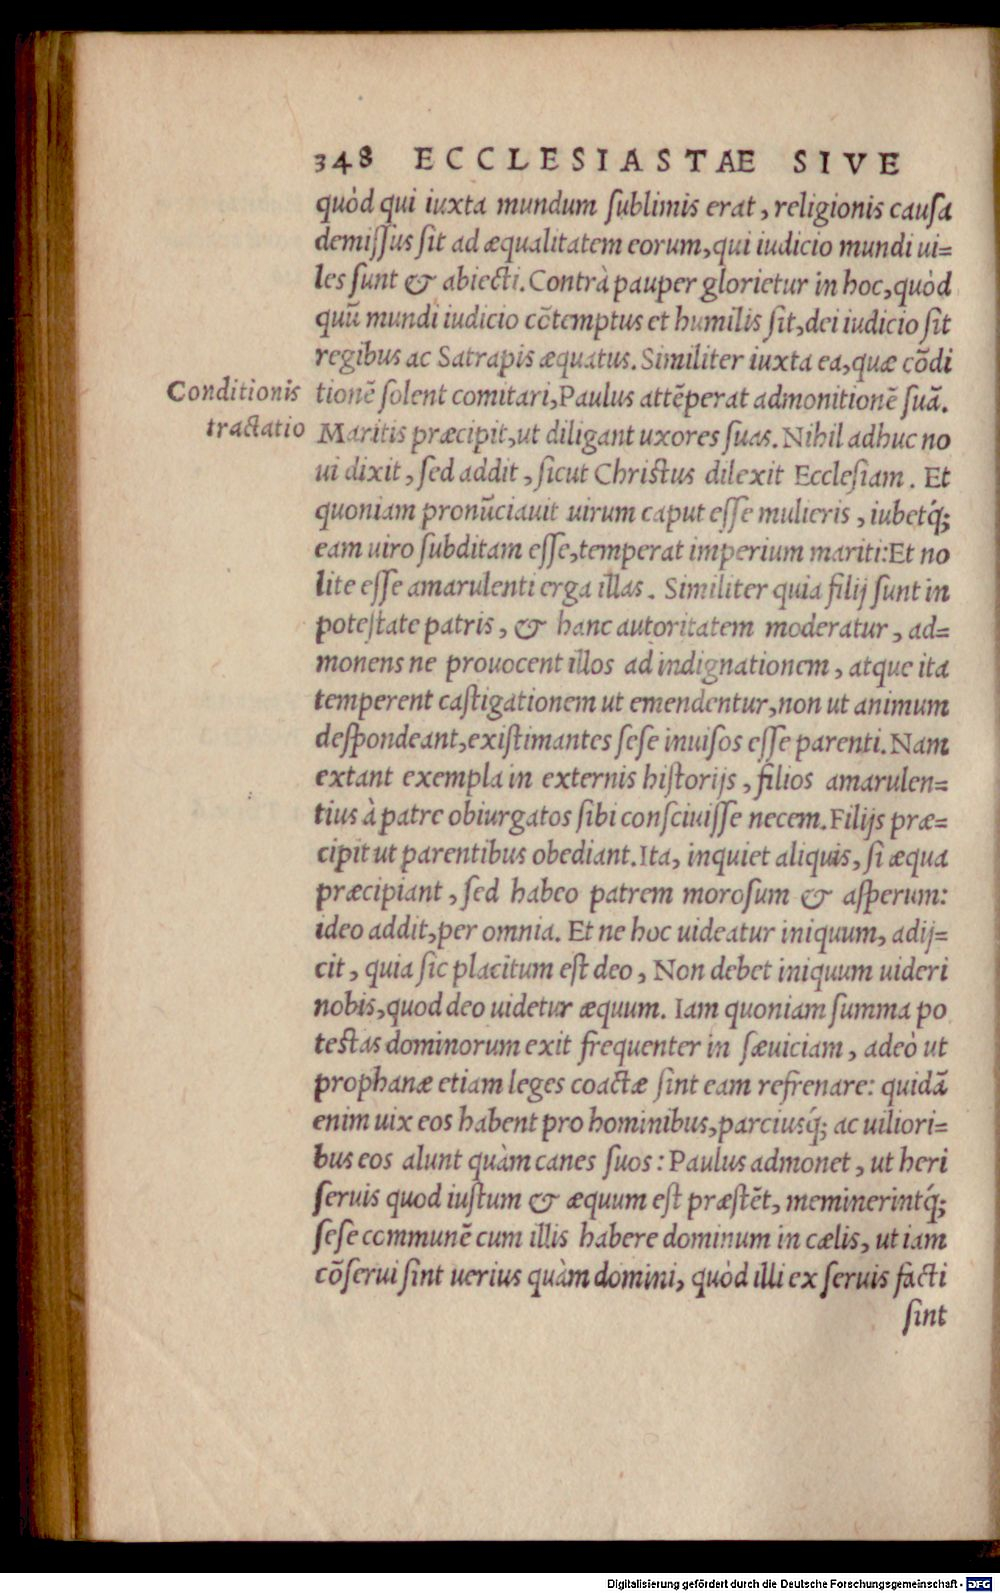 348 ECCLESIASTAE SIVE
quòd qui iuxta mundum ſublimis erat, religionis cauſa
demiſſus ſit ad æqualitatem eorum, qui iudicio mundi ui=
les ſunt & abiecti. Contrà pauper glorietur in hoc, quòd
quū mundi iudicio cōtemptus et humilis ſit, dei iudicio ſit
regibus ac Satrapis æquatus. Similiter iuxta ea, quæ cōdi
Conditionis
tionē ſolent comitari, Paulus attēperat admonitionē ſuā.
tractatio
Maritis præcipit, ut diligant uxores ſuas. Nihil adhuc no
ui dixit, ſed addit, ſicut Chriſtus dilexit Eccleſiam. Et
quoniam pronūciauit uirum caput eſſe mulieris, iubetq́;
eam uiro ſubditam eſſe, temperat imperium mariti: Et no
lite eſſe amarulenti erga illas. Similiter quia filij ſunt in
poteſtate patris, & hanc autoritatem moderatur, ad=
monens ne prouocent illos ad indignationem, atque ita
temperent caſtigationem ut emendentur, non ut animum
deſpondeant, exiſtimantes ſeſe inuiſos eſſe parenti. Nam
extant exempla in externis hiſtorijs, filios amarulen=
tius à patre obiurgatos ſibi conſciuiſſe necem. Filijs præ=
cipit ut parentibus obediant. Ita, inquiet aliquis, ſi æqua
præcipiant, ſed habeo patrem moroſum & aſperum:
ideo addit, per omnia. Et ne hoc uideatur iniquum, adij=
cit, quia ſic placitum eſt deo, Non debet iniquum uideri
nobis, quod deo uidetur æquum. Iam quoniam ſumma po
teſtas dominorum exit frequenter in ſæuiciam, adeò ut
prophanæ etiam leges coactæ ſint eam refrenare: quidā
enim uix eos habent pro hominibus, parciusq́; ac uiliori=
bus eos alunt quàm canes ſuos: Paulus admonet, ut heri
ſeruis quod iuſtum & æquum eſt præſtēt, meminerintq́;
ſeſe communē cum illis habere dominum in cælis, ut iam
cōſerui ſint uerius quàm domini, quòd illi ex ſeruis facti
ſint
Digitalisierung gefördert durch die Deutsche Forschungsgemeinschaft - DFG